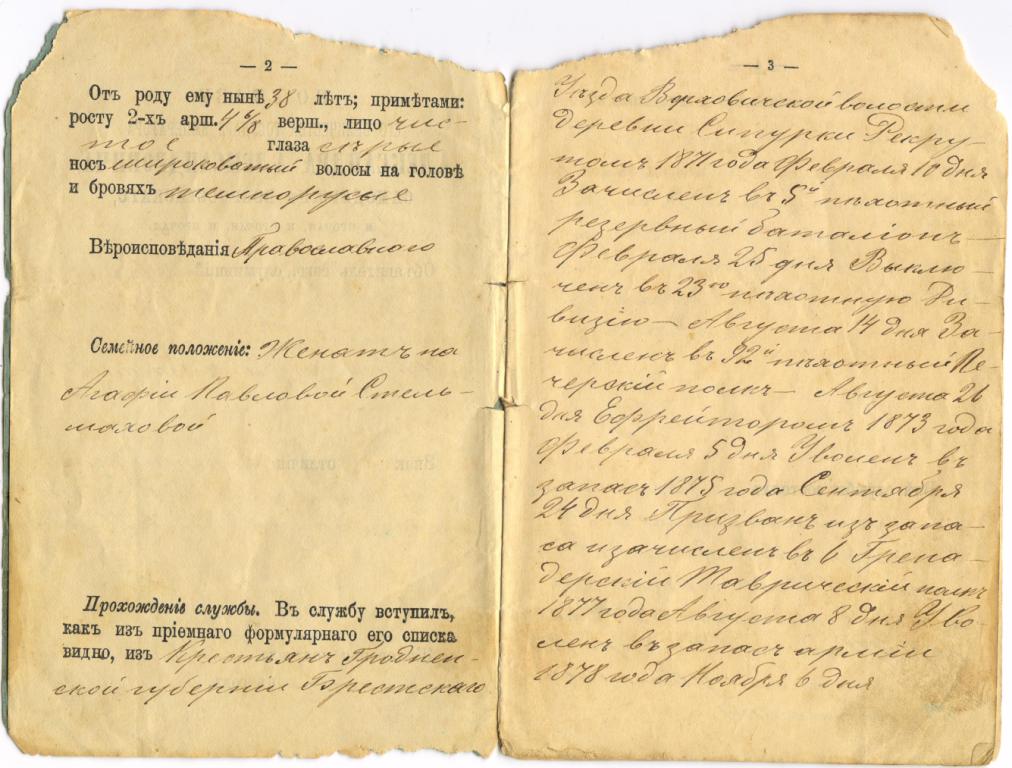 — 2 —
Отъ роду ему нынѣ 38 лѣтъ; примѣтами:
росту 2-хъ арш. 4 6/8 верш., лицо чис-
тое глаза сѣрые
носъ широковатый волосы на головѣ
и бровяхъ темнорусые
Вѣроисповѣданія Православного
Семейное положеніе: Женатъ на
Агафіи Павловой Стель-
маховой
Прохожденіе службы. Въ службу вступилъ,
какъ изъ пріемнаго формулярнаго его списка
видно, изъ Крестьянъ Гроднен-
ской губерніи Брестскаго
— 3 —
Уѣзда Верховичской волости
деревни Сипурки Рекру-
томъ 1871 года Февраля 10 дня
Зачисленъ въ 5й пѣхотный
резервный баталіонъ —
Февраля 25 дня Выклю-
ченъ въ 23ю пѣхотную Ди-
визію — Августа 14 дня За-
численъ въ 92й пѣхотный Пе-
черскій полкъ — Августа 26
дня Ефрейторомъ 1873 года
Февраля 5 дня Уволенъ въ
запасъ 1875 года Сентября
24 дня Призванъ изъ запа-
са и зачисленъ въ 6 Грена-
дерскій Таврическій полкъ
1877 года Августа 8 дня Уво-
ленъ въ запасъ арміи
1878 года Ноября 6 дня